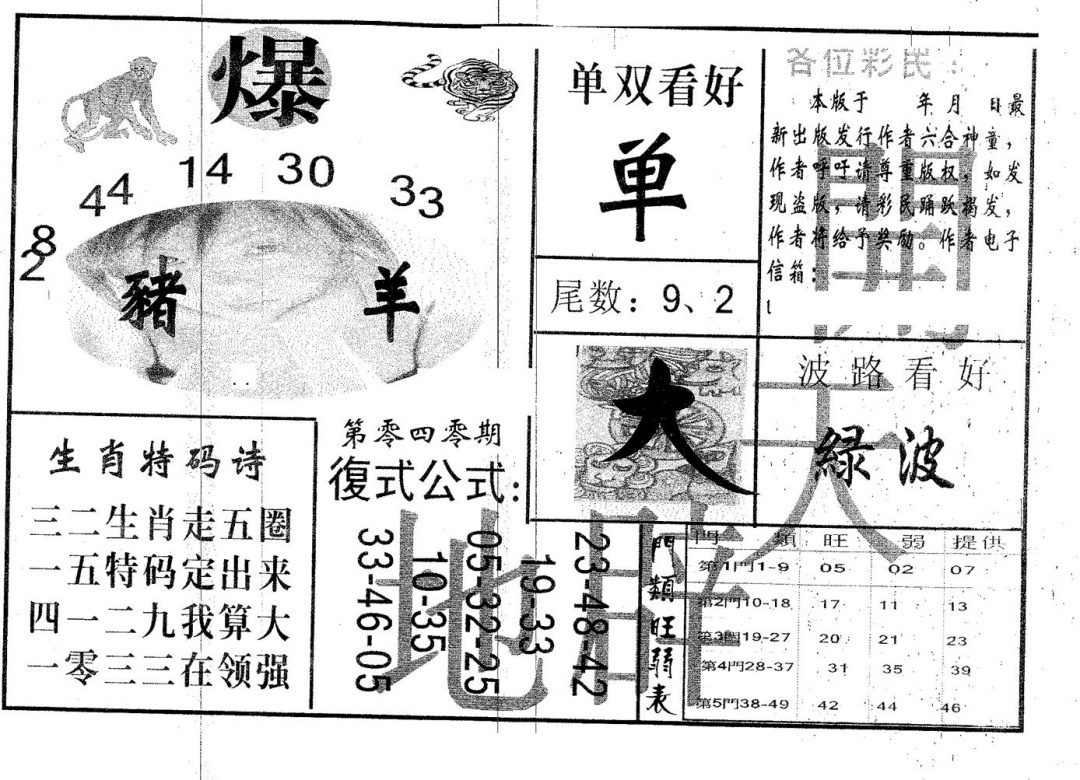 爆
28
44
14
30
33
豬
羊
单双看好
单
尾数：9、2
各位彩民：
本版于 年 月 日最
新出版发行作者六合神童，
作者呼吁请尊重版权，如发
现盗版，请彩民踊跃揭发，
作者将给予奖励。作者电子
信箱：
大
波路看好
緑波
生肖特码诗
三二生肖走五圈
一五特码定出来
四一二九我算大
一零三三在领强
第零四零期
復式公式：
33-46-05
10-35
05-32-25
19-33
23-48-42
門類旺弱表
門 類 旺 弱 提供
第1門1-9 05 02 07
第2門10-18 17 11 13
第3門19-27 20 21 23
第4門28-37 31 35 39
第5門38-49 42 44 46
天
地